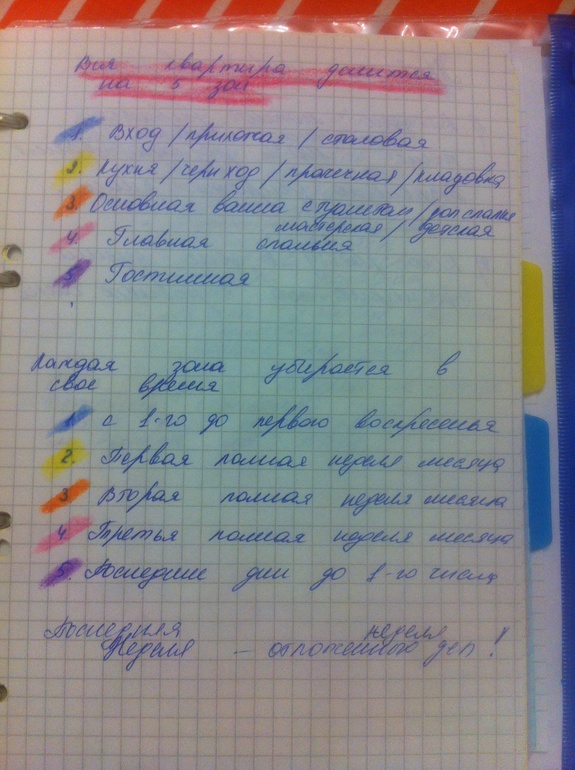 Вся квартира делится
на 5 зон
1. Вход / прихожая / столовая
2. Кухня / чер. ход / прачечная / кладовка
3. Основная ванна с туалетом / доп спальня
мастерская / детская
4. Главная спальня
5. Гостинная
Каждая зона убирается в
свое время
1. с 1-го до первого воскресенья
2. Первая полная неделя месяца
3. Вторая полная неделя месяца
4. Третья полная неделя месяца
5. Последние дни до 1-го числа
Последняя неделя
Неделя – отложенных дел!